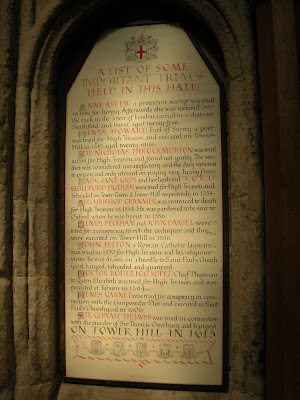 A LIST OF SOME
IMPORTANT TRIALS
HELD IN THIS HALL
ANNE ASKEW a protestant martyr was tried
in 1546 for heresy. Afterwards she was tortured on
the rack in the Tower of London, carried in a chair to
Smithfield, and burnt, aged twenty-five
HENRY HOWARD Earl of Surrey, a poet
was tried for High Treason and executed on Tower
Hill in 1547, aged twenty-nine
SIR NICHOLAS THROCKMORTON was tried
in 1554 for High Treason and found not guilty. The ver-
dict was considered unsatisfactory, and the Jury were sent
to prison and only released on paying very heavy fines.
LADY JANE GREY and her husband LORD
GUILDFORD DUDLEY were tried for High Treason and
beheaded on Tower Green & Tower Hill respectively in 1554.
ARCHBISHOP CRANMER was sentenced to death
for High Treason in 1554. He was pardoned to be sent to
Oxford, where he was burnt in 1556.
HENRY PECKHAM and JOHN DANIEL were
tried for a conspiracy to rob the exchequer and they
were executed on Tower Hill in 1556.
JOHN FELTON, a Roman Catholic Layman
was tried in 1570 for High Treason, and
he was drawn on a hurdle to Saint Paul's Church-
yard, hanged, beheaded and quartered.
DOCTOR RODERIGO LOPEZ, Chief Physician
to Queen Elizabeth was tried for High Treason, and was
executed at Tyburn in 1594
HENRY GARNET was tried for conspiracy in conn-
ection with the Gunpowder Plot and executed in Saint
Paul's Churchyard in 1606.
SIR GERVASE HELWYS was tried in connection
with the murder of Sir Thomas Overbury and hanged
ON TOWER HILL IN 1615